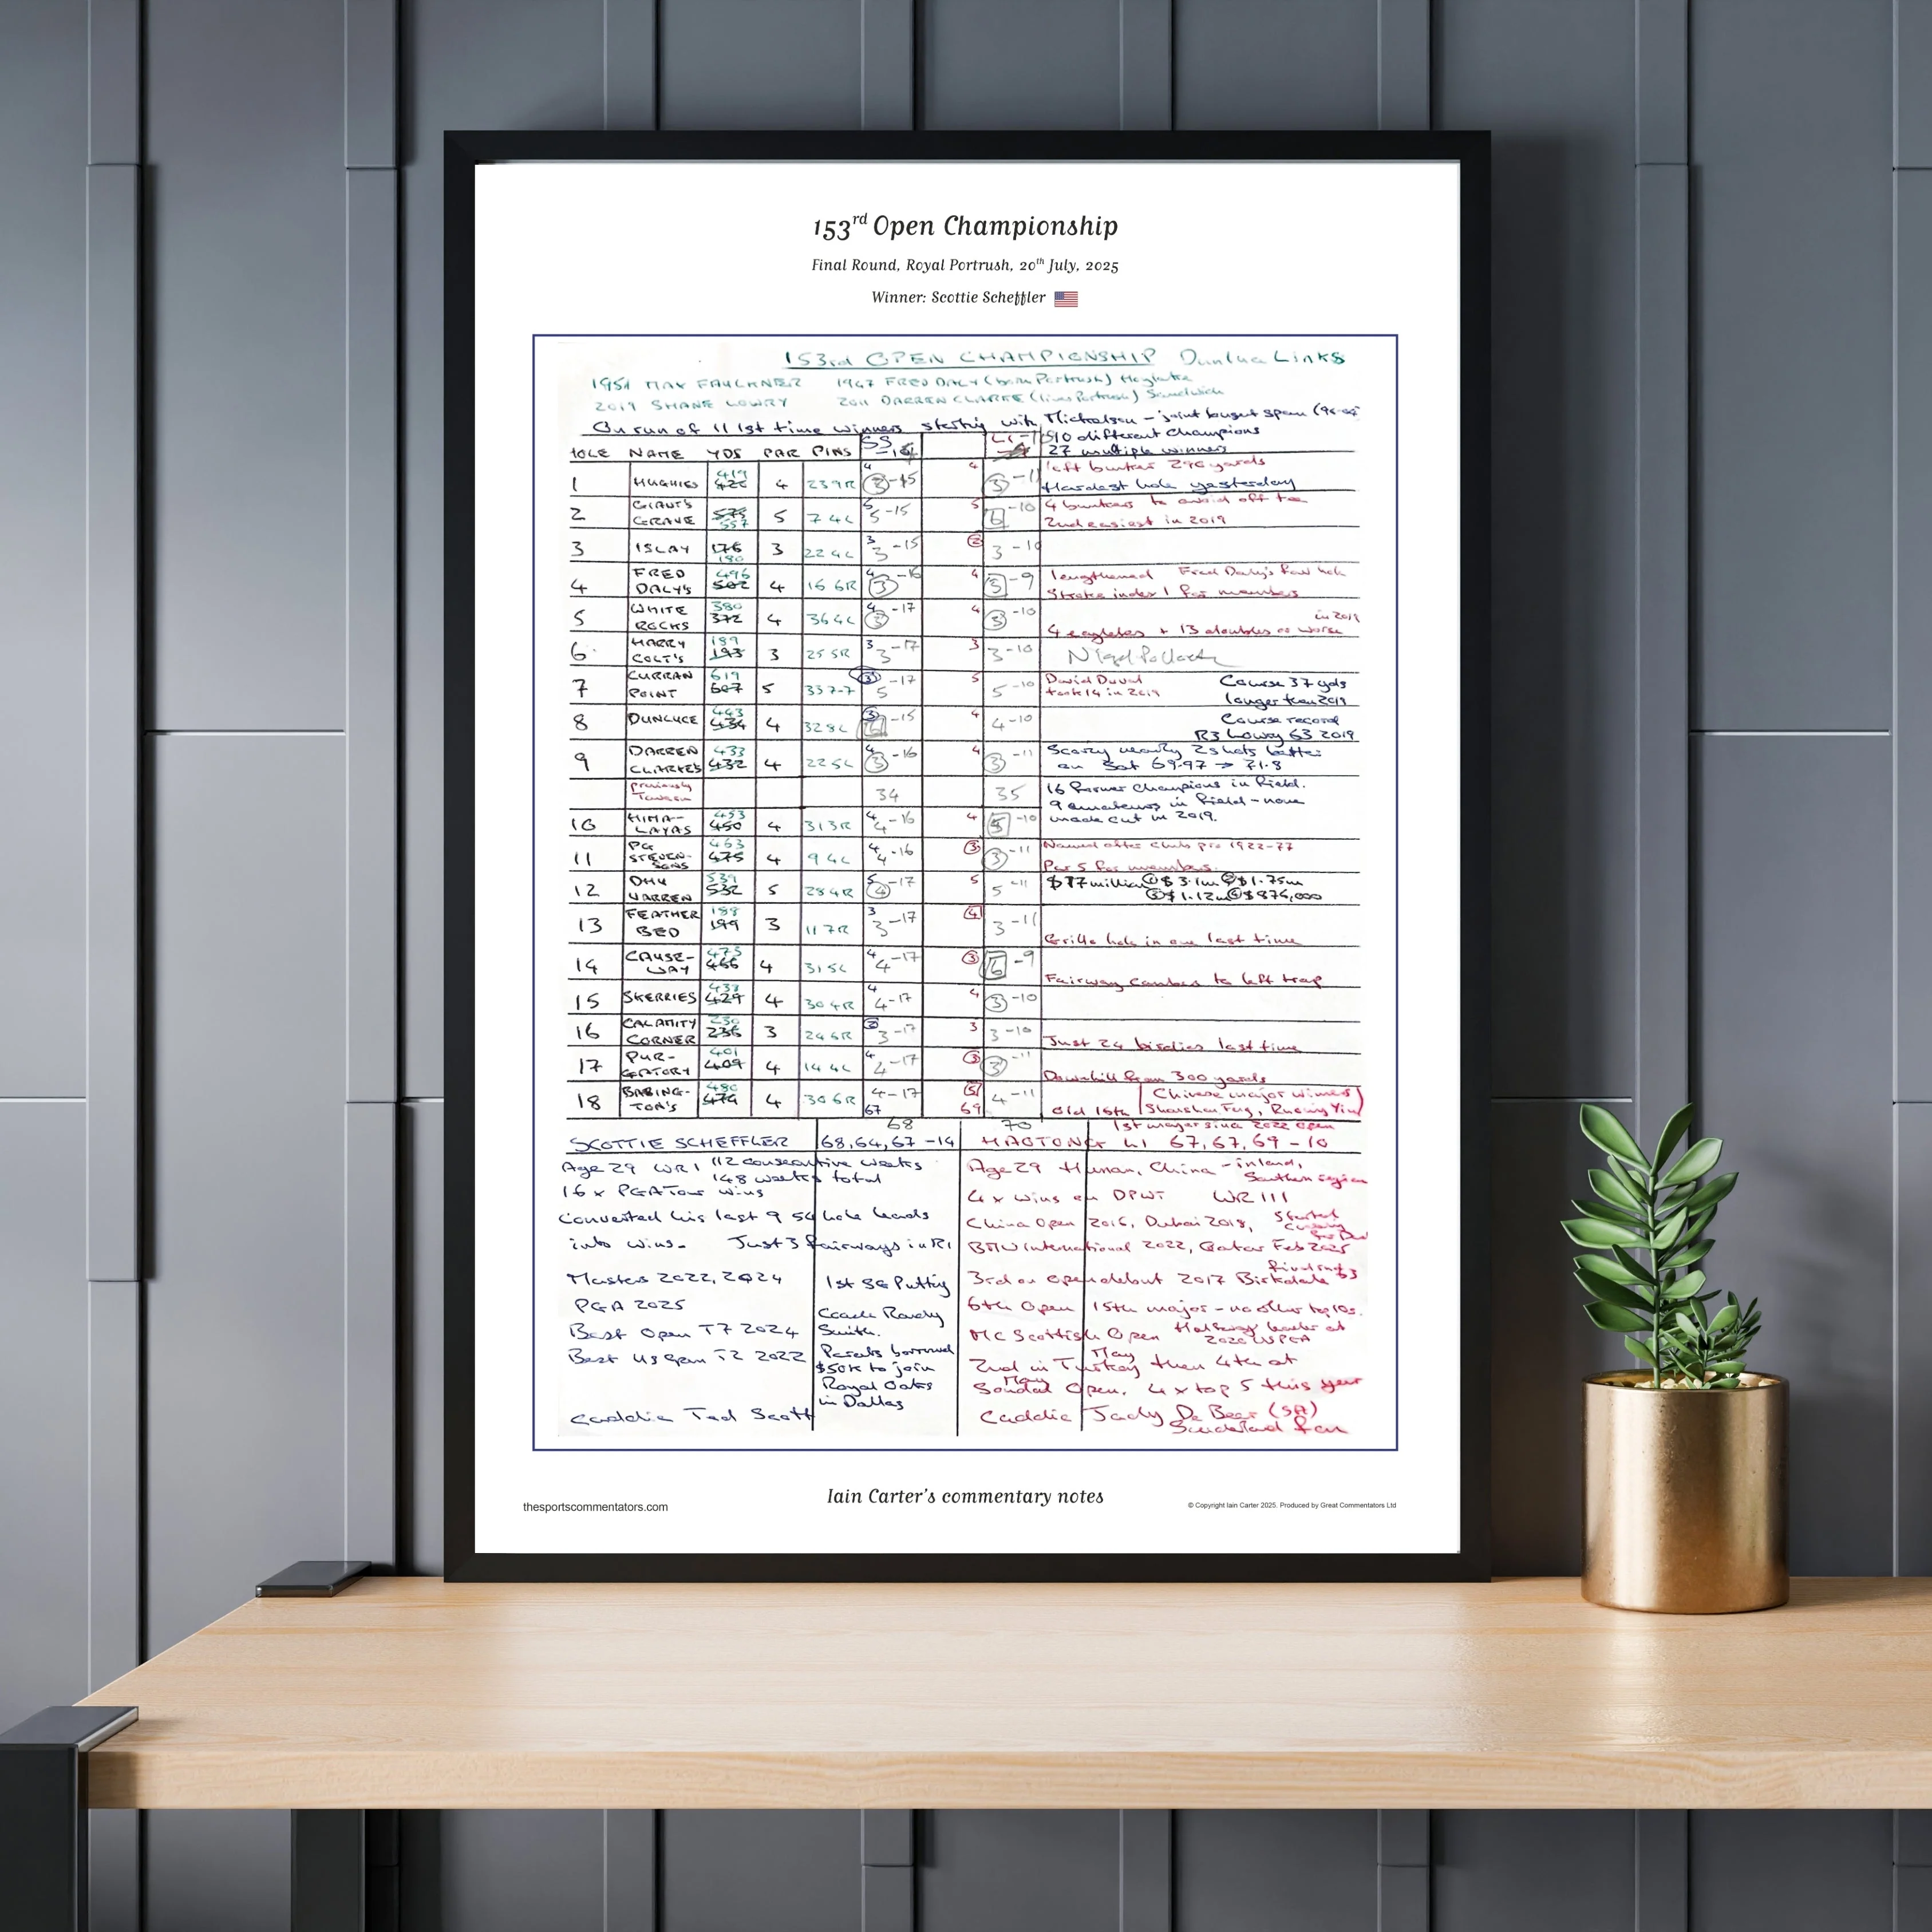 153rd Open Championship
Final Round, Royal Portrush, 20th July, 2025
Winner: Scottie Scheffler
153rd OPEN CHAMPIONSHIP Dunluce Links
1951 MAX FAULKNER 1947 FRED DALY (born Portrush) Hoylake
2019 SHANE LOWRY 2011 DARREN CLARKE (lives Portrush) Sandwich
On run of 11 1st time winners starting with Mickelson - joint longest span
SS LI 10 different champions
HOLE NAME YDS PAR PINS -14 27 multiple winners
1 HUGHIES 419 426 4 23 9R 4 3 -15 4 3 -11 left bunker 296 yards
Hardest hole yesterday
2 GIANT'S GRAVE 575 557 5 7 4L 5 5 -15 5 6 -10 4 bunkers to avoid off tee
2nd easiest in 2019
3 ISLAY 176 180 3 22 4L 3 3 -15 2 3 -10
4 FRED DALY'S 496 502 4 16 6R 4 3 -16 4 5 -9 lengthened Fred Daly's fav hole
Stroke index 1 for members
5 WHITE ROCKS 380 372 4 36 4L 4 3 -17 4 3 -10 in 2019
4 eagles + 13 doubles or worse
6 HARRY COLT'S 189 193 3 25 5R 3 3 -17 3 3 -10
7 CURRAN POINT 619 607 5 33 7-7 5 -17 5 5 -10 David Duval took 14 in 2019
Course 37 yds longer than 2019
8 DUNLUCE 443 434 4 32 8L 3 6 -15 4 4 -10 Course record
R3 Lowry 63 2019
9 DARREN CLARKE'S 433 432 4 22 5L 4 3 -16 4 3 -11 Scoring nearly 2 shots better
on Sat 69.97 → 71.8
previously Tavern 34 35 16 former champions in field.
9 amateurs in field - none
made cut in 2019.
10 HIMALAYAS 453 450 4 31 3R 4 4 -16 4 5 -10
11 PG STEVENSONS 463 475 4 9 4L 4 4 -16 3 3 -11 Named after club pro 1922-77
Par 5 for members
12 DHU VARREN 539 532 5 28 4R 5 4 -17 5 5 -11 $17 million ① $3.1m ② $1.75m
③ $1.12m ④ $876,000
13 FEATHER BED 199 3 11 7R 3 3 -17 4 3 -11
Grillo hole in one last time
14 CAUSE-WAY 473 466 4 31 5L 4 4 -17 3 6 -9
Fairway cambers to left trap
15 SKERRIES 429 4 30 4R 4 4 -17 4 3 -10
16 CALAMITY CORNER 236 3 24 6R 2 3 -17 3 3 -10
Just 24 birdies last time
17 PUR-GATORY 401 409 4 14 4L 4 4 -17 3 3 -11
Downhill from 300 yards
18 BABING-TON'S 480 474 4 30 6R 4 -17 5 4 -11 Chinese major winners
67 69 Old 16th Shanshan Feng, Ruoning Yin
68 70 1st major since 2022 Open
SCOTTIE SCHEFFLER 68, 64, 67 -14 HAOTONG LI 67, 67, 69 -10
Age 29 WR1 112 consecutive weeks
148 weeks total
16 x PGA Tour wins
Converted his last 9 54 hole leads
into wins. Just 3 fairways in R1
Masters 2022, 2024
PGA 2025
Best Open T7 2024
Best US Open T2 2022
Caddie Ted Scott
1st SG Putting
Coach Randy
Smith.
Parents borrowed
$50k to join
Royal Oaks
in Dallas
Age 29 Hunan, China - inland,
Southern region
4 x wins on DPWT WR 111
China Open 2016, Dubai 2018,
BMW International 2022, Qatar Feb 2025
3rd on Open debut 2017 Birkdale final rnd 63
6th Open 15th major - no other top 10s.
MC Scottish Open Halfway leader at
2020 USPGA
2nd in Turkey May then 4th at
Soudal Open. May 4 x top 5 this year
Caddie Jady De Beer (SA)
Sunderland fan
Iain Carter's commentary notes
thesportscommentators.com
© Copyright Iain Carter 2025. Produced by Great Commentators Ltd